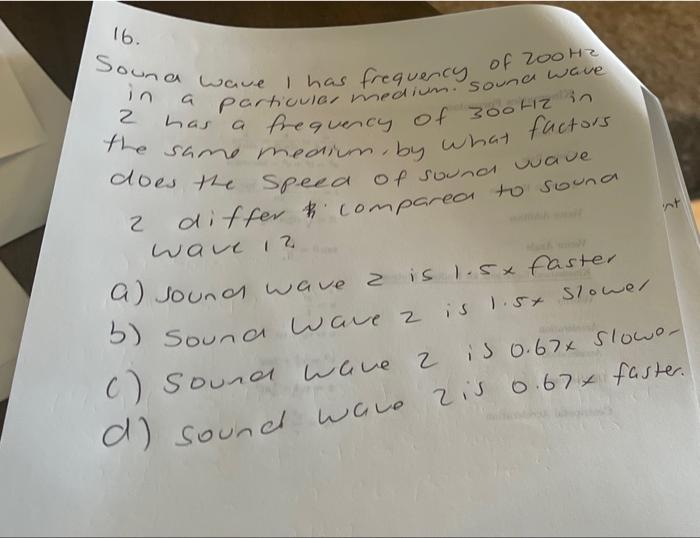 16.
Sound wave 1 has frequency of 200Hz
in a particular medium. Sound wave
2 has a frequency of 300Hz in
the same medium, by what factors
does the speed of sound wave
2 differ compared to sound
wave 1?
a) sound wave 2 is 1.5x faster
b) sound wave 2 is 1.5x slower
c) Sound wave 2 is 0.67x slower
d) sound wave 2 is 0.67x faster.
nt